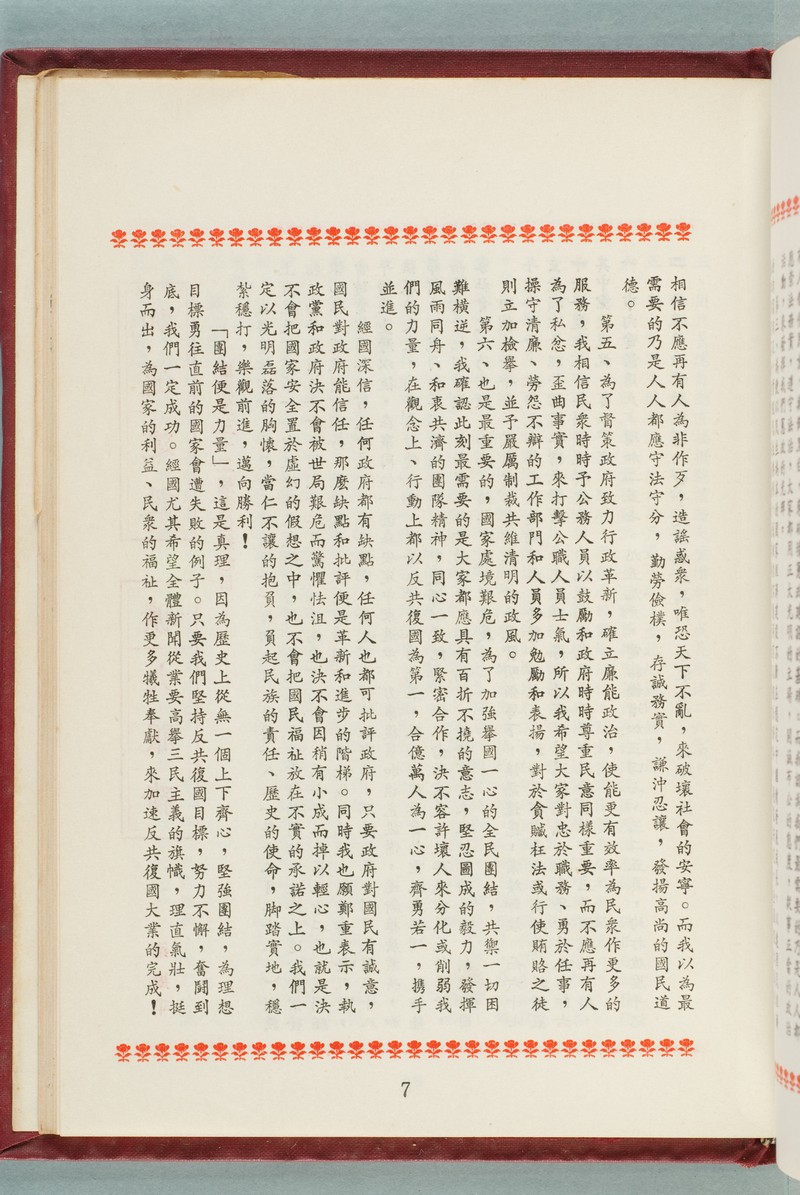 相信不應再有人為非作歹，造謠惑衆，唯恐天下不亂，來破壞社會的安寧。而我以為最
需要的乃是人人都應守法守分，勤勞儉樸，存誠務實，謙沖忍讓，發揚高尚的國民道
德。
第五、為了督策政府致力行政革新，確立廉能政治，使能更有效率為民衆作更多的
服務，我相信民衆時時予公務人員以鼓勵和政府時時尊重民意同樣重要，而不應再有人
為了私忿，歪曲事實，來打擊公職人員士氣，所以我希望大家對忠於職務、勇於任事，
操守清廉、勞怨不辭的工作部門和人員多加勉勵和表揚，對於貪贓枉法或行使賄賂之徒
則立加檢舉，並予嚴厲制裁共維清明的政風。
第六、也是最重要的，國家處境艱危，為了加強舉國一心的全民團結，共禦一切困
難橫逆，我確認此刻最需要的是大家都應具有百折不撓的意志，堅忍圖成的毅力，發揮
風雨同舟、和衷共濟的團隊精神，同心一致，緊密合作，決不容許壞人來分化或削弱我
們的力量，在觀念上、行動上都以反共復國為第一，合億萬人為一心，齊勇若一，携手
並進。
經國深信，任何政府都有缺點，任何人也都可批評政府，只要政府對國民有誠意，
國民對政府能信任，那麼缺點和批評便是革新和進步的階梯。同時我也願鄭重表示，執
政黨和政府決不會被世局艱危而驚懼怯沮，也決不會因稍有小成而掉以輕心，也就是決
不會把國家安全置於虛幻的假想之中，也不會把國民福祉放在不實的承諾之上。我們一
定以光明磊落的胸懷，當仁不讓的抱負，負起民族的責任、歷史的使命，脚踏實地，穩
紮穩打，樂觀前進，邁向勝利！
「團結便是力量」，這是真理，因為歷史上從無一個上下齊心，堅強團結，為理想
目標勇往直前的國家會遭失敗的例子。只要我們堅持反共復國目標，努力不懈，奮鬪到
底，我們一定成功。經國尤其希望全體新聞從業要高舉三民主義的旗幟，理直氣壯，挺
身而出，為國家的利益、民衆的福祉，作更多犧牲奉獻，來加速反共復國大業的完成！
7